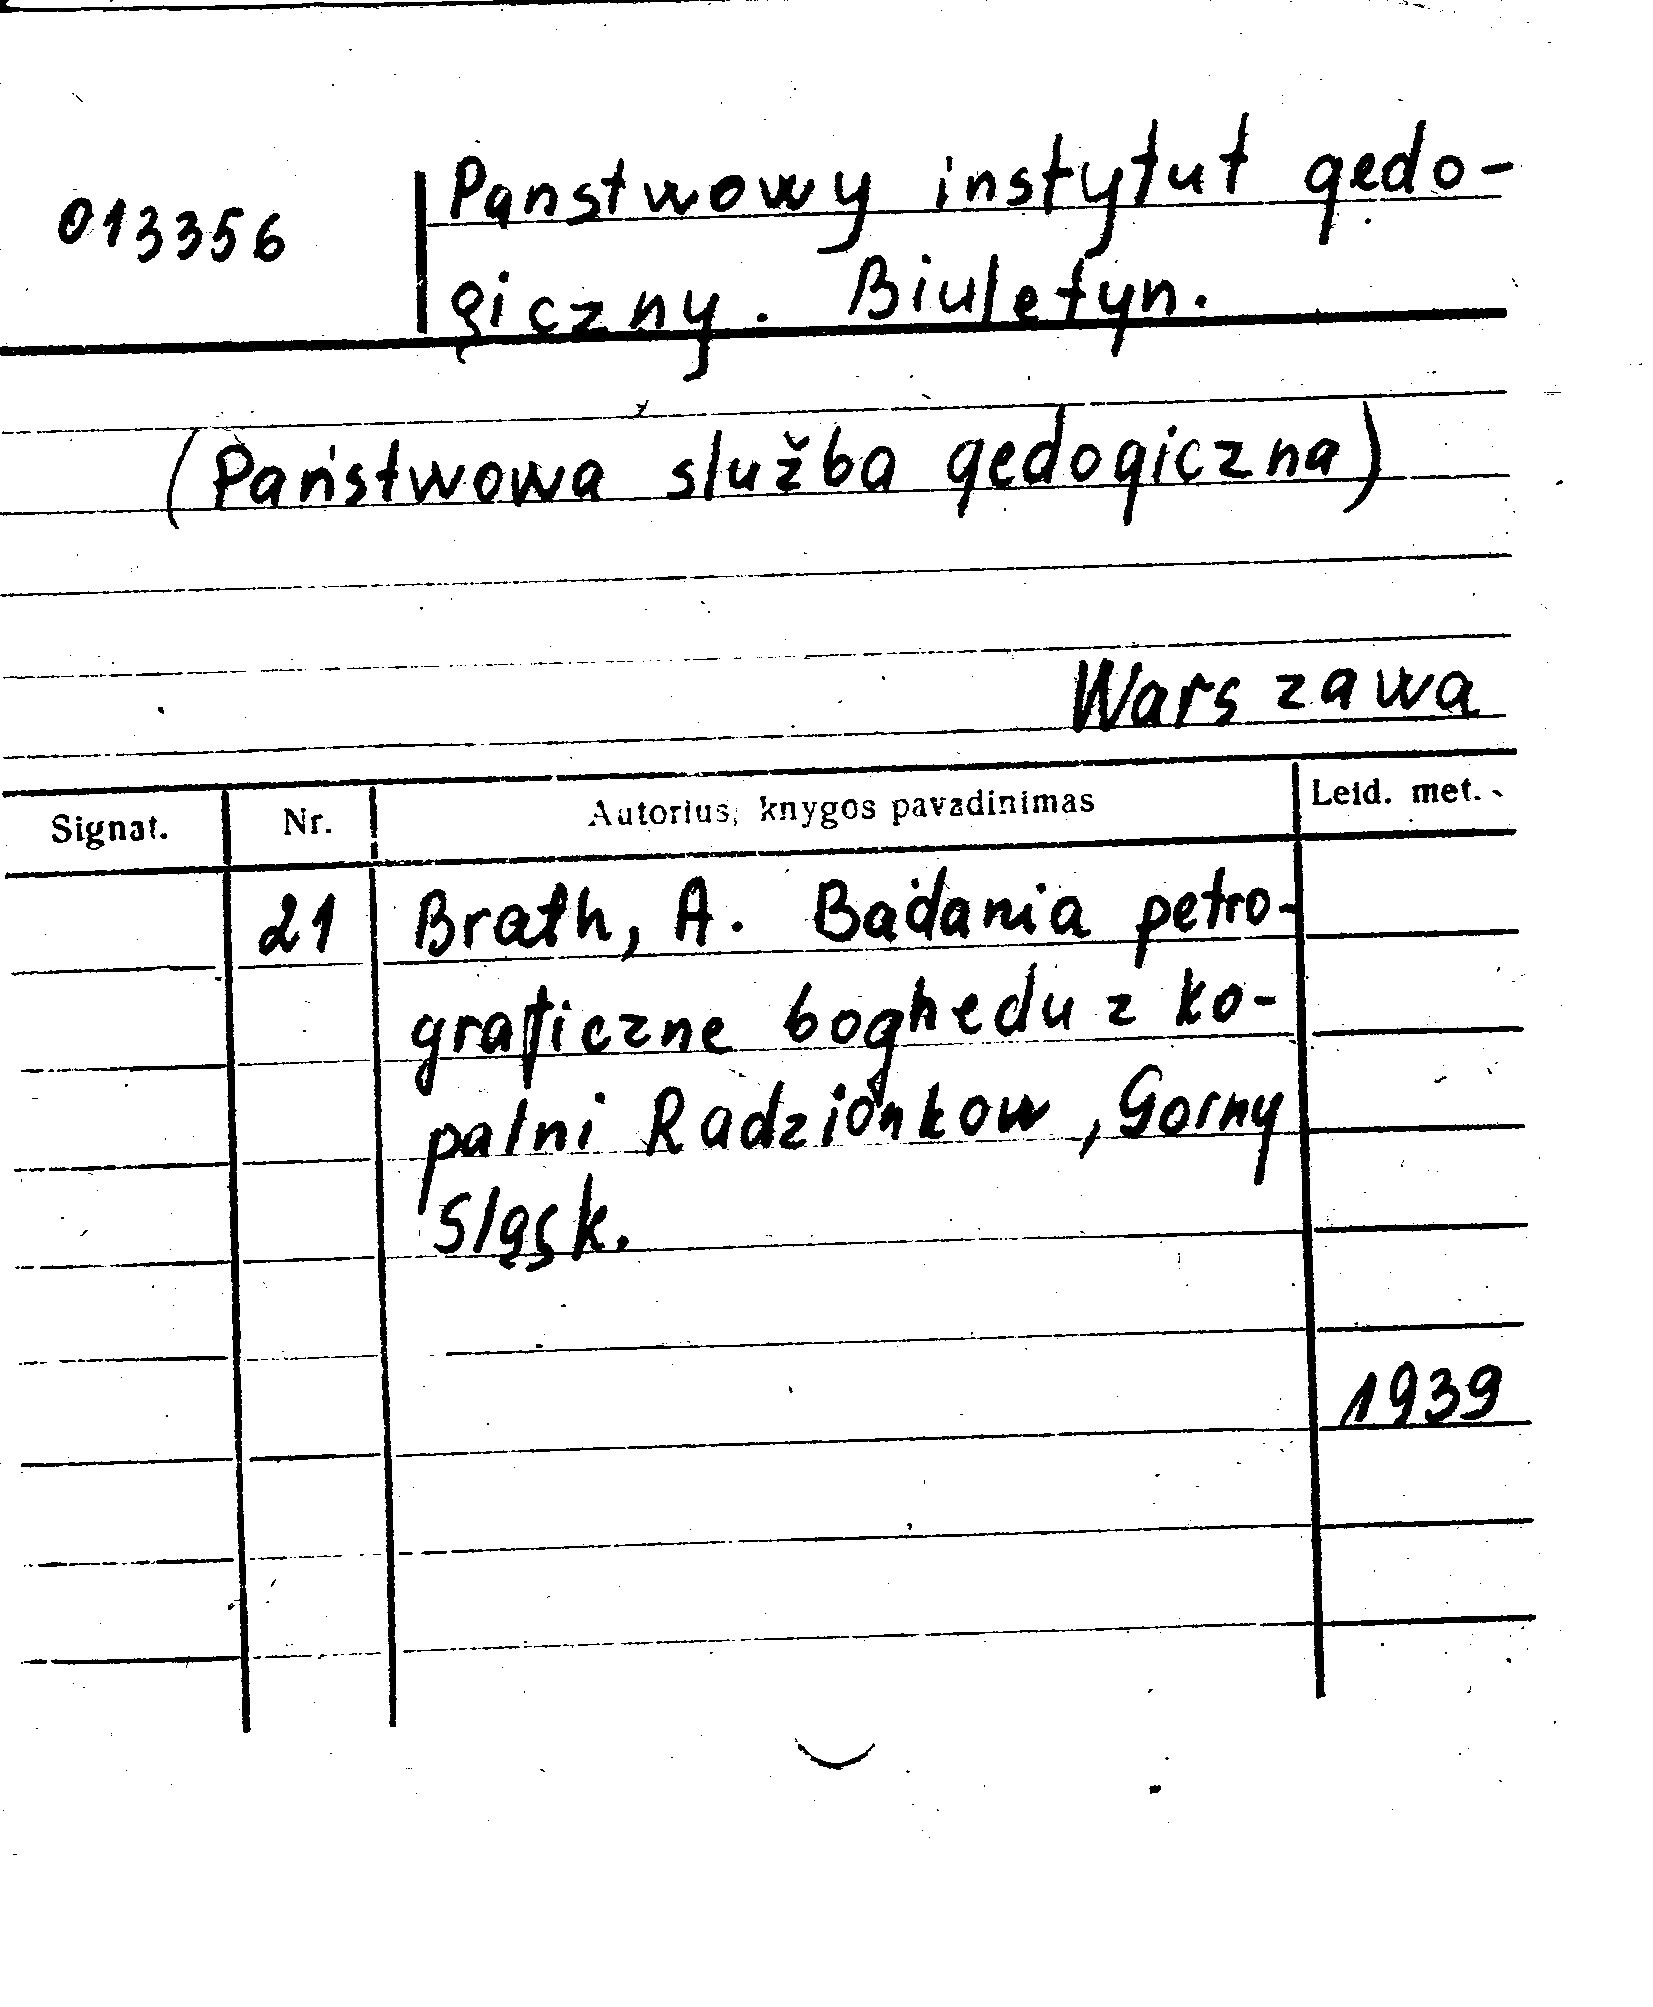 013356
Panstwowy instytut gedo-
giczny. Biuletyn.
(Państwowa služba gedogiczna)
Warszawa
Signat. Nr. Autorius, knygos pavadinimas Leid. met.
21 Brath, A. Badania petro-
graficzne boghedu z ko-
palni Radzionkow, Gorny
Sląsk.
1939